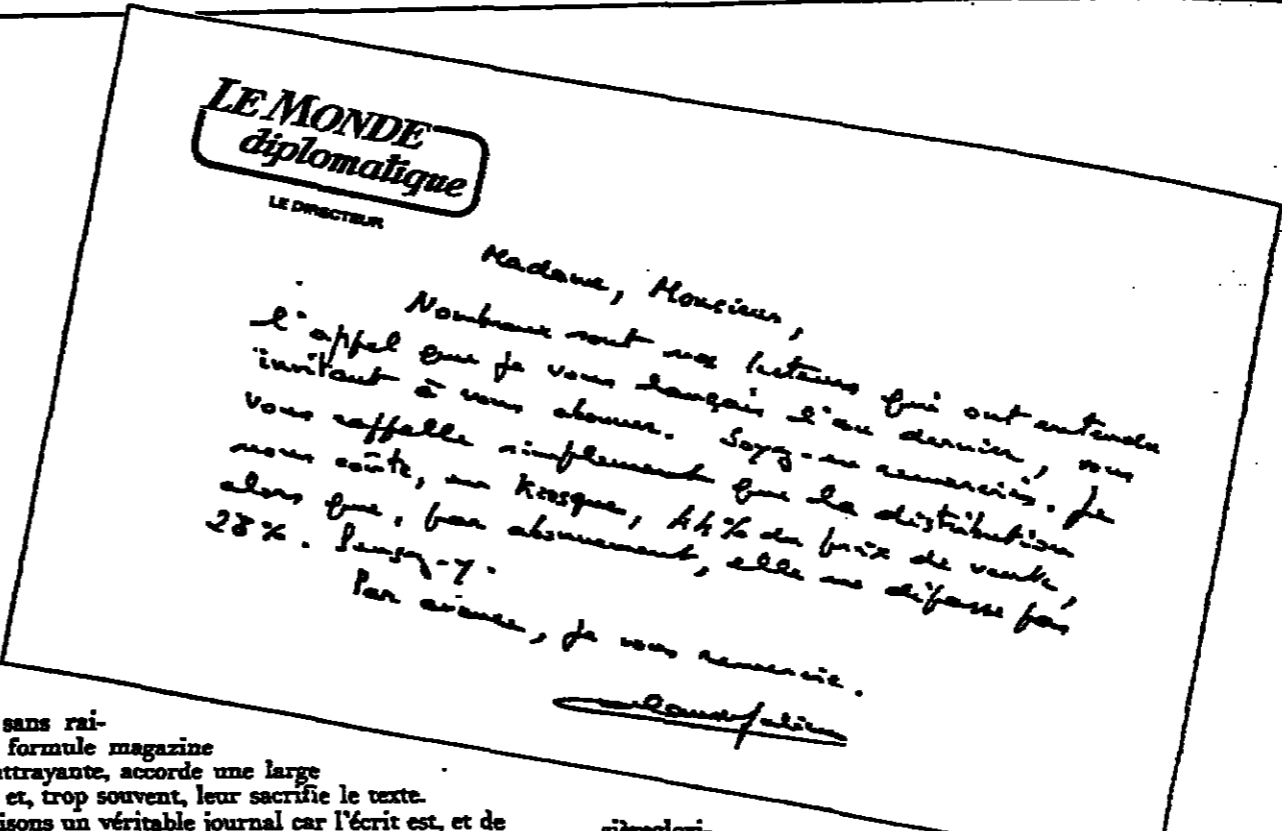 LE MONDE
diplomatique
LE DIRECTEUR
Madame, Monsieur,
Nombreux sont nos lecteurs qui ont entendu
l'appel que je vous lançais l'an dernier, vous
invitant à vous abonner. Soyez-en remerciés. Je
vous rappelle simplement que la distribution
nous coûte, en kiosque, 44% du prix de vente,
alors que, par abonnement, elle ne dépasse pas
28%. Pensez-y.
Par avance, je vous remercie.
sans rai-
formule magazine
attrayante, accorde une large
et, trop souvent, leur sacrifie le texte.
isons un véritable journal car l'écrit est, et de